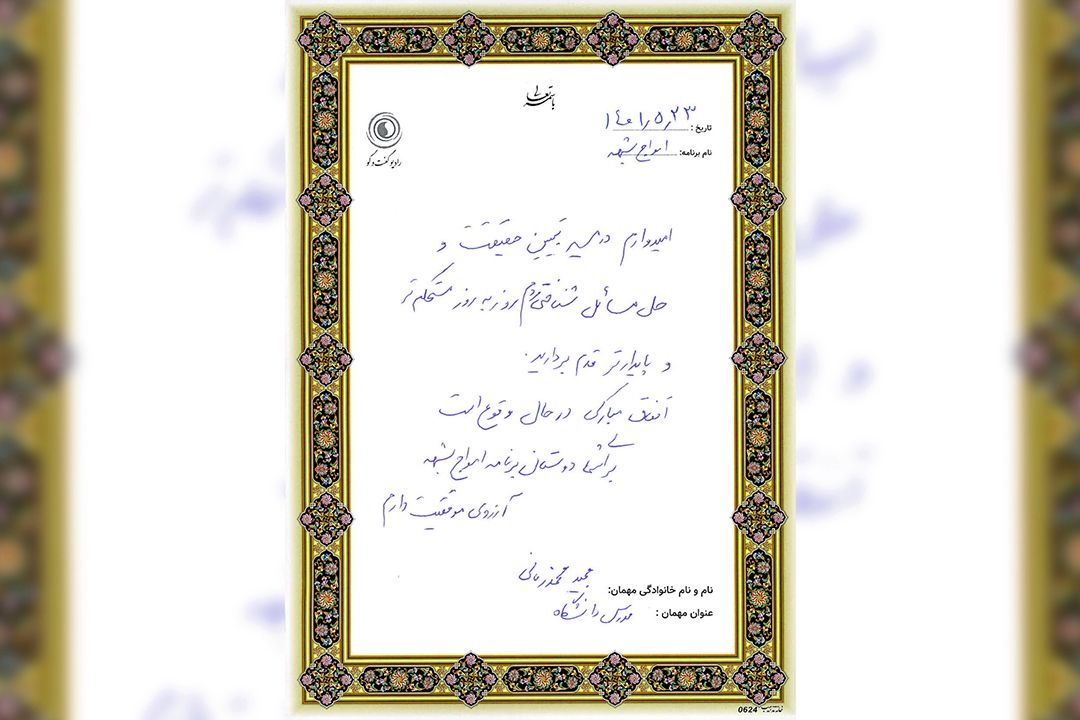 باسمه تعالی
تاریخ : ۱۴۰۱٫۵٫۲۳
نام برنامه: امواج شبهه
رادیو گفت و گو
امیدوارم در مسیر تبیین حقیقت و
حل مسائل شناختی مردم روز به روز مستحکم تر
و پایدارتر قدم بردارید.
اتفاق مبارکی در حال وقوع است
برای شما دوستان برنامه امواج شبهه
آرزوی موفقیت دارم
نام و نام خانوادگی مهمان: مجید محمدزمانی
عنوان مهمان : مدرس دانشگاه
0624